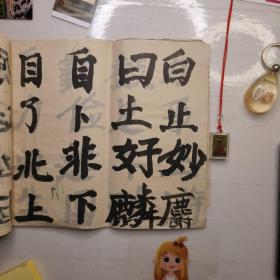 白止妙麝
曰土好麟
自卜非下
目了北上